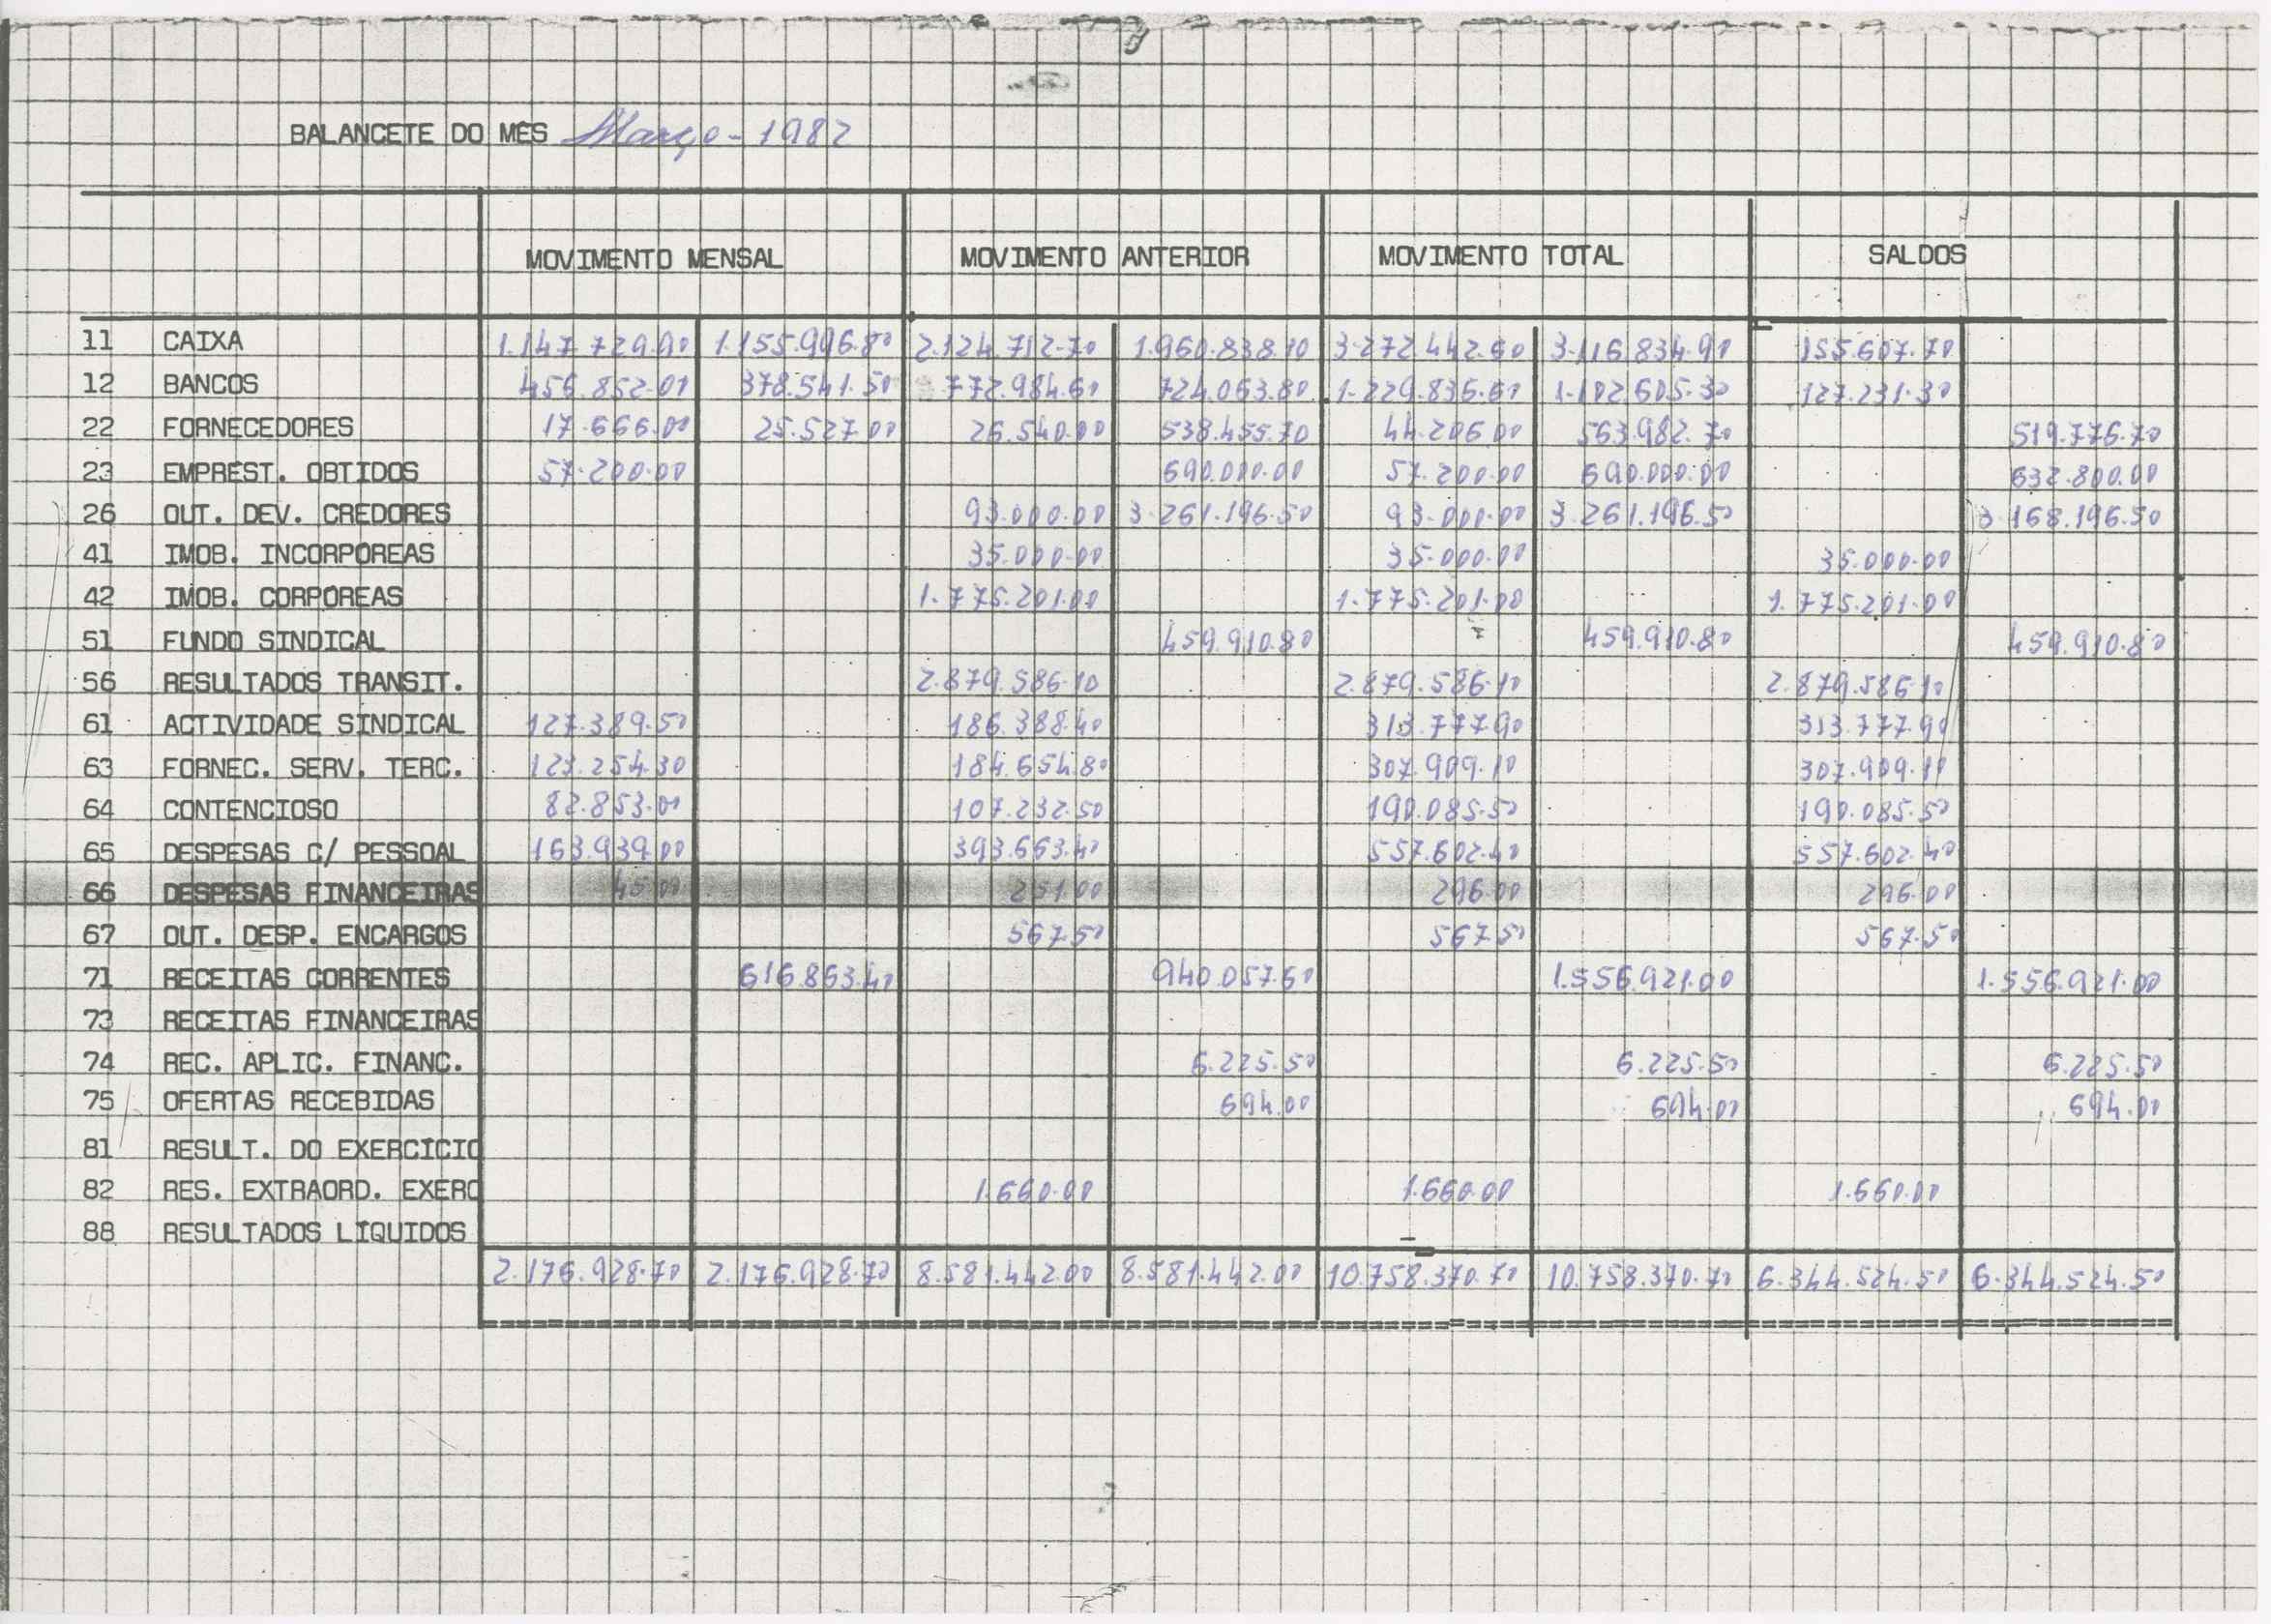 BALANCETE DO MÊS Março - 1982
MOVIMENTO MENSAL MOVIMENTO ANTERIOR MOVIMENTO TOTAL SALDOS
11 CAIXA 1.147.729.90 1.155.996.80 2.124.712.70 1.960.838.10 3.272.442.60 3.116.834.90 155.607.70
12 BANCOS 456.852.00 378.541.50 772.984.60 724.063.80 1.229.836.60 1.102.605.30 127.231.30
22 FORNECEDORES 17.666.00 25.527.00 26.540.00 538.455.70 44.206.00 563.982.70 519.776.70
23 EMPRÉST. OBTIDOS 57.200.00 690.000.00 57.200.00 690.000.00 632.800.00
26 OUT. DEV. CREDORES 93.000.00 3.261.196.50 93.000.00 3.261.196.50 3.168.196.50
41 IMOB. INCORPÓREAS 35.000.00 35.000.00 35.000.00
42 IMOB. CORPÓREAS 1.775.201.00 1.775.201.00 1.775.201.00
51 FUNDO SINDICAL 459.910.80 459.910.80 459.910.80
56 RESULTADOS TRANSIT. 2.879.586.10 2.879.586.10 2.879.586.10
61 ACTIVIDADE SINDICAL 127.389.50 186.388.40 313.777.90 313.777.90
63 FORNEC. SERV. TERC. 123.254.30 184.654.80 307.909.10 307.909.10
64 CONTENCIOSO 82.853.00 107.232.50 190.085.50 190.085.50
65 DESPESAS C/ PESSOAL 163.939.00 393.663.40 557.602.40 557.602.40
66 DESPESAS FINANCEIRAS 45.00 251.00 296.00 296.00
67 OUT. DESP. ENCARGOS 567.50 567.50 567.50
71 RECEITAS CORRENTES 616.863.40 940.057.60 1.556.921.00 1.556.921.00
73 RECEITAS FINANCEIRAS
74 REC. APLIC. FINANC. 6.225.50 6.225.50 6.225.50
75 OFERTAS RECEBIDAS 694.00 694.00 694.00
81 RESULT. DO EXERCÍCIO
82 RES. EXTRAORD. EXERC 1.660.00 1.660.00 1.660.00
88 RESULTADOS LÍQUIDOS
2.176.928.70 2.176.928.70 8.581.442.00 8.581.442.00 10.758.370.70 10.758.370.70 6.344.524.50 6.344.524.50